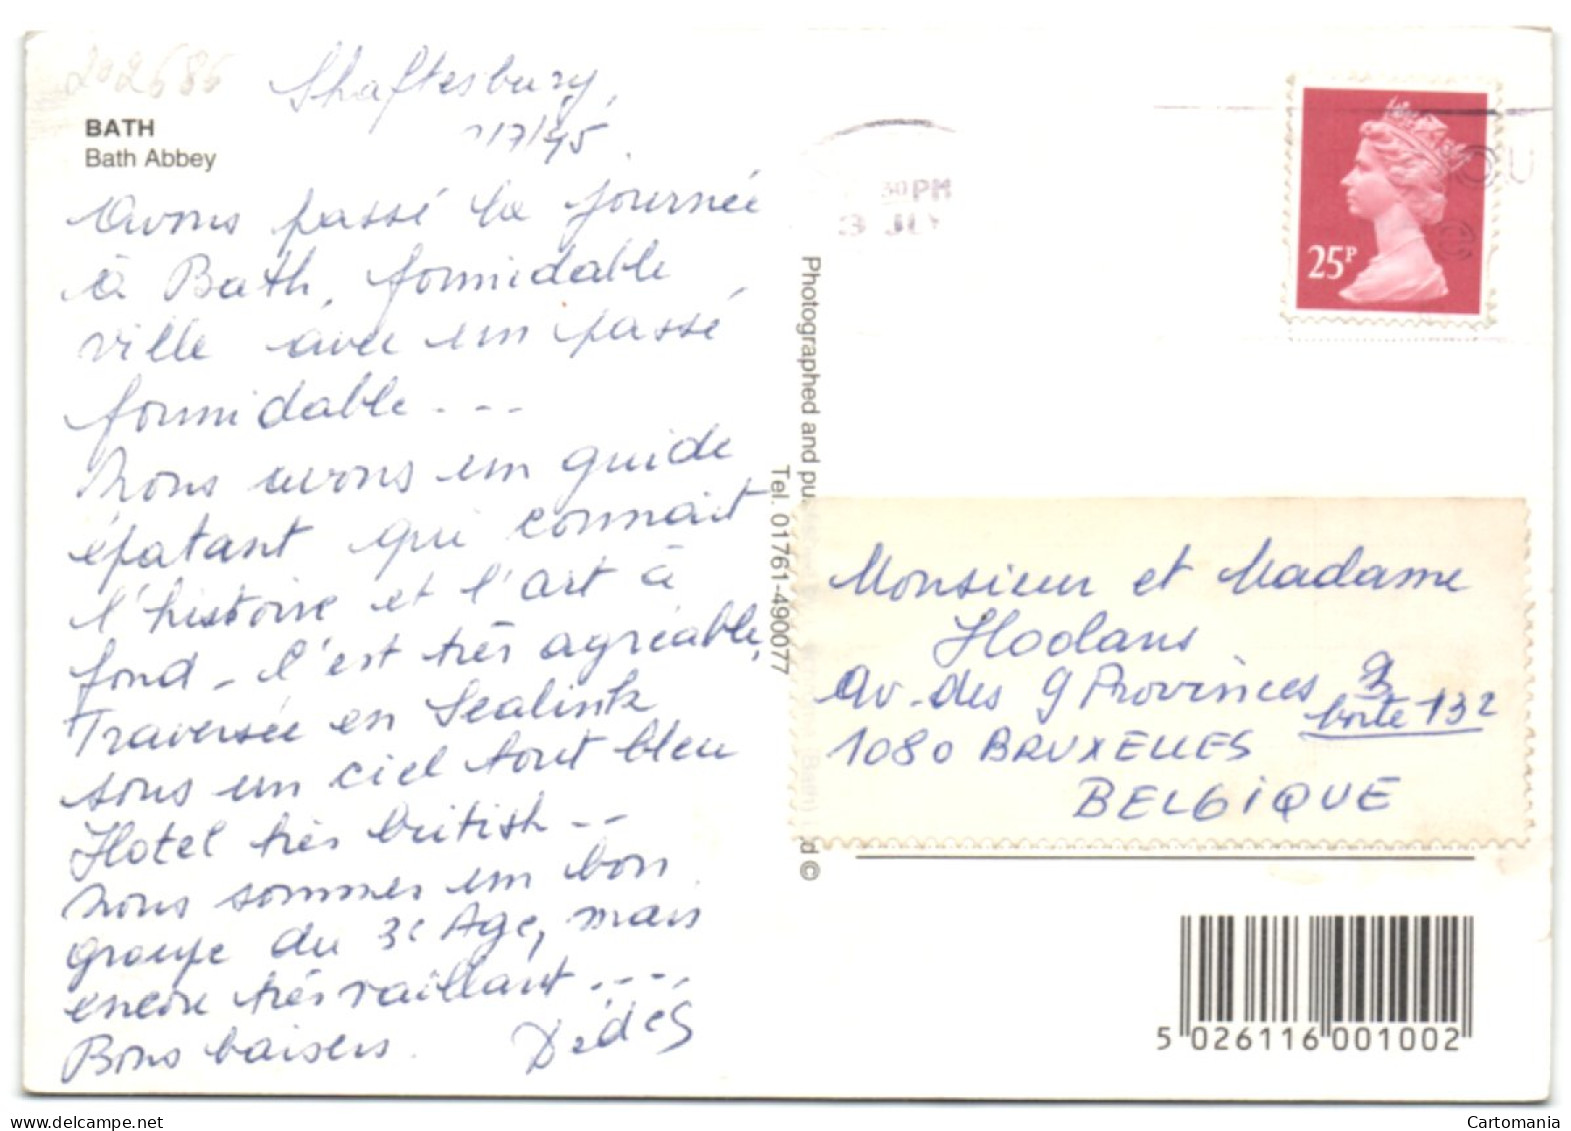 202686
Shaftesbury,
/7/95
BATH
Bath Abbey
Avons passé la journée
à Bath, formidable
ville avec un passé
formidable - - -
Nous avons un guide
épatant qui connait
l'histoire et l'art à
fond - C'est très agréable,
Traversée en Sealink
sous un ciel tout bleu
Hotel très british - -
Nous sommes un bon
groupe du 3e Age, mais
encore très vaillant - - - -
Bons baisers.
Dédés
30PM
3 JLY
OU
25P
Photographed and pu
d ©
Tel. 01761-490077
Monsieur et Madame
Hoolans
Av. des 9 Provinces
boite 132
1080 BRUXELLES
BELGIQUE
5 026116 001002
delcampe.net
Cartomania